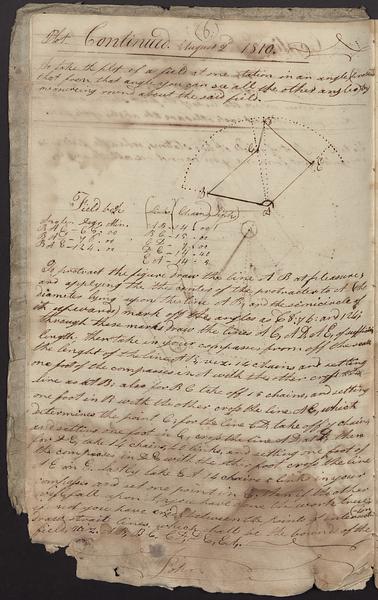 (6)
Plot Continued August 2d 1810
To take the plot of a field at one station in an angle
that from that angle you can see all the other angles by
measuring round about the said field.
D
C
E
B
A
Field book
Angles Degs Min.
BAC - 68 - 00
BAD - 76 - 00
BAE - 124 - 00
Chain
AB - 14
BC - 15
CD - 7
DE - 14 - 40
EA - 14 - 5
To protract the figure draw the line AB at pleasure
and applying the center of the protractor to A (the
diameter lying upon the line AB, and the semicircle of
it upwards) mark off the angles as 68, 76, and 124
through these marks draw the lines AC, AD, AE, of sufficient
length, then take in your compasses from off the scale
the lenght of the line AB, viz 14 chains and setting
one foot of the compasses in A with the other cross the
line as at B; also for BC take off 15 chains, and setting
one foot in B with the other cross the line AC, which
determines the point C, for the line CD take off 7 chains
and setting one foot in C, cross the line AD at D; then
for DE, take 14 chains links, and setting one foot of
the compasses in D with the other foot cross the line
AE in E; lastly take EA 14 chains 5 links in your
compasses and set one point in E, then if the other
fall upon A you have done the work truly
if not you have between the points
strait lines, which shall be the bounds of the
field viz. AB, BC, CD, DE, EA.